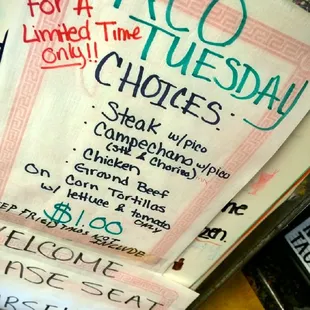 For A
Limited Time
Only!!
TACO
TUESDAY
CHOICES:
· Steak w/pico
· Campechano w/pico
(Stk & Chorizo)
· Chicken
· Ground Beef
On Corn Tortillas
w/ lettuce & tomato
only
$1.00
WELCOME
SEAT